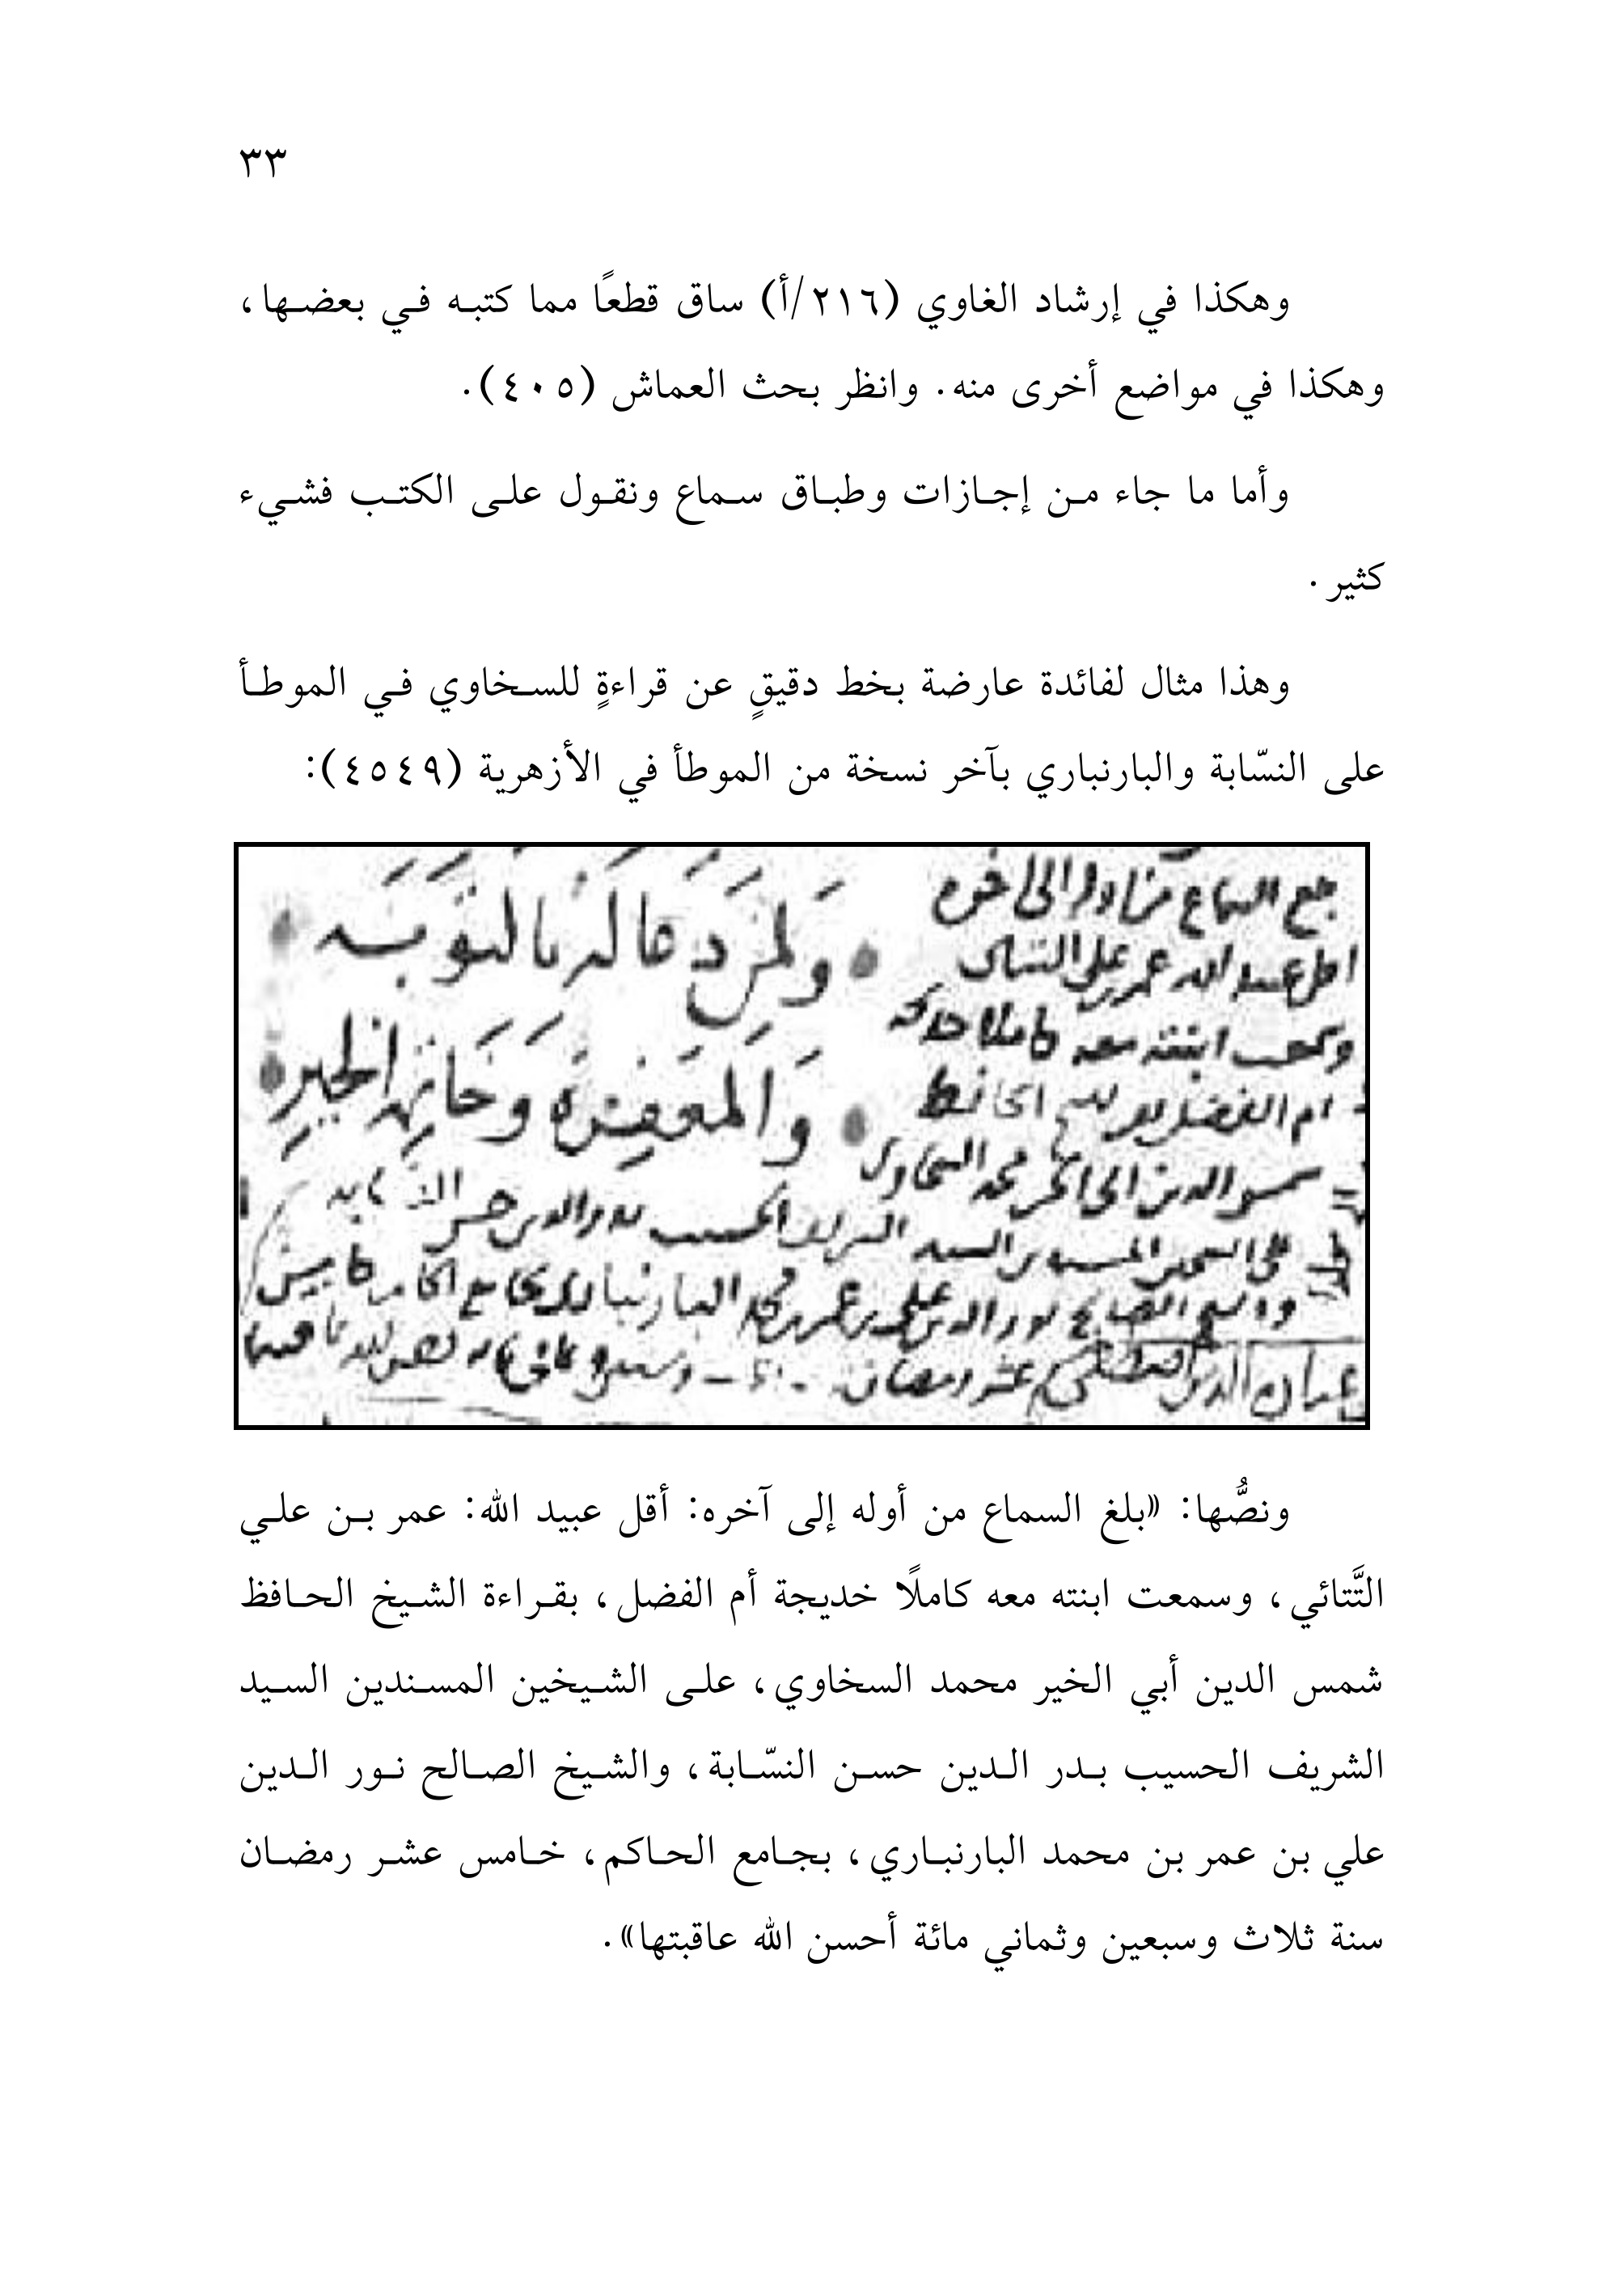 ٣٣
وهكذا في إرشاد الغاوي (٢١٦/أ) ساق قطعًا مما كتبه في بعضها،
وهكذا في مواضع أخرى منه. وانظر بحث العماش (٤٠٥).
وأما ما جاء من إجازات وطباق سماع ونقول على الكتب فشيء
كثير.
وهذا مثال لفائدة عارضة بخط دقيقٍ عن قراءةٍ للسخاوي في الموطأ
على النسّابة والبارنباري بآخر نسخة من الموطأ في الأزهرية (٤٥٤٩):
ولمن دعا له بالتوبه
والمغفرة وخاتمة الخير
ونصُّها: «بلغ السماع من أوله إلى آخره: أقل عبيد الله: عمر بن علي
التَّتائي، وسمعت ابنته معه كاملًا خديجة أم الفضل، بقراءة الشيخ الحافظ
شمس الدين أبي الخير محمد السخاوي، على الشيخين المسندين السيد
الشريف الحسيب بدر الدين حسن النسّابة، والشيخ الصالح نور الدين
علي بن عمر بن محمد البارنباري، بجامع الحاكم، خامس عشر رمضان
سنة ثلاث وسبعين وثماني مائة أحسن الله عاقبتها».